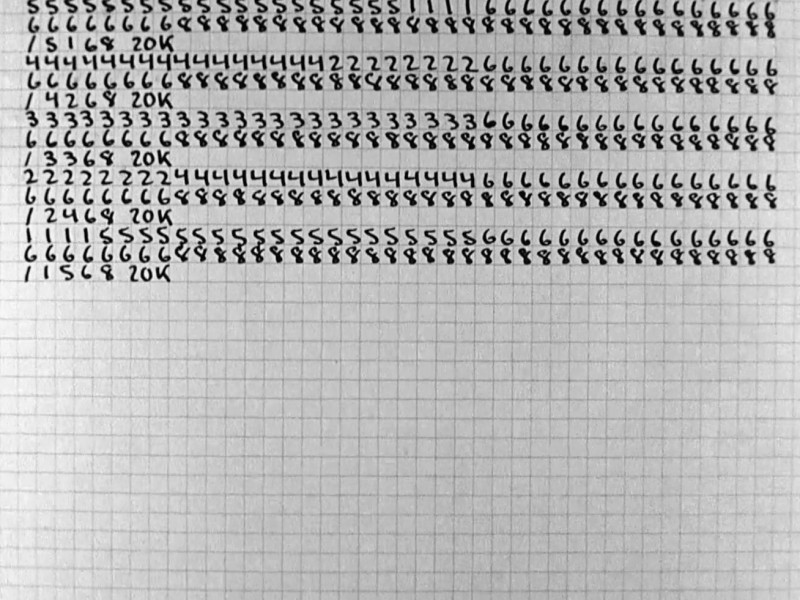 5555555555555555555511116666666666666666
6666666688888888888888888888888888888888
/ 5 1 6 8 20K
4444444444444444222222226666666666666666
6666666688888888888888888888888888888888
/ 4 2 6 8 20K
3333333333333333333333336666666666666666
6666666688888888888888888888888888888888
/ 3 3 6 8 20K
2222222244444444444444446666666666666666
6666666688888888888888888888888888888888
/ 2 4 6 8 20K
1111555555555555555555556666666666666666
6666666688888888888888888888888888888888
/ 1 5 6 8 20K